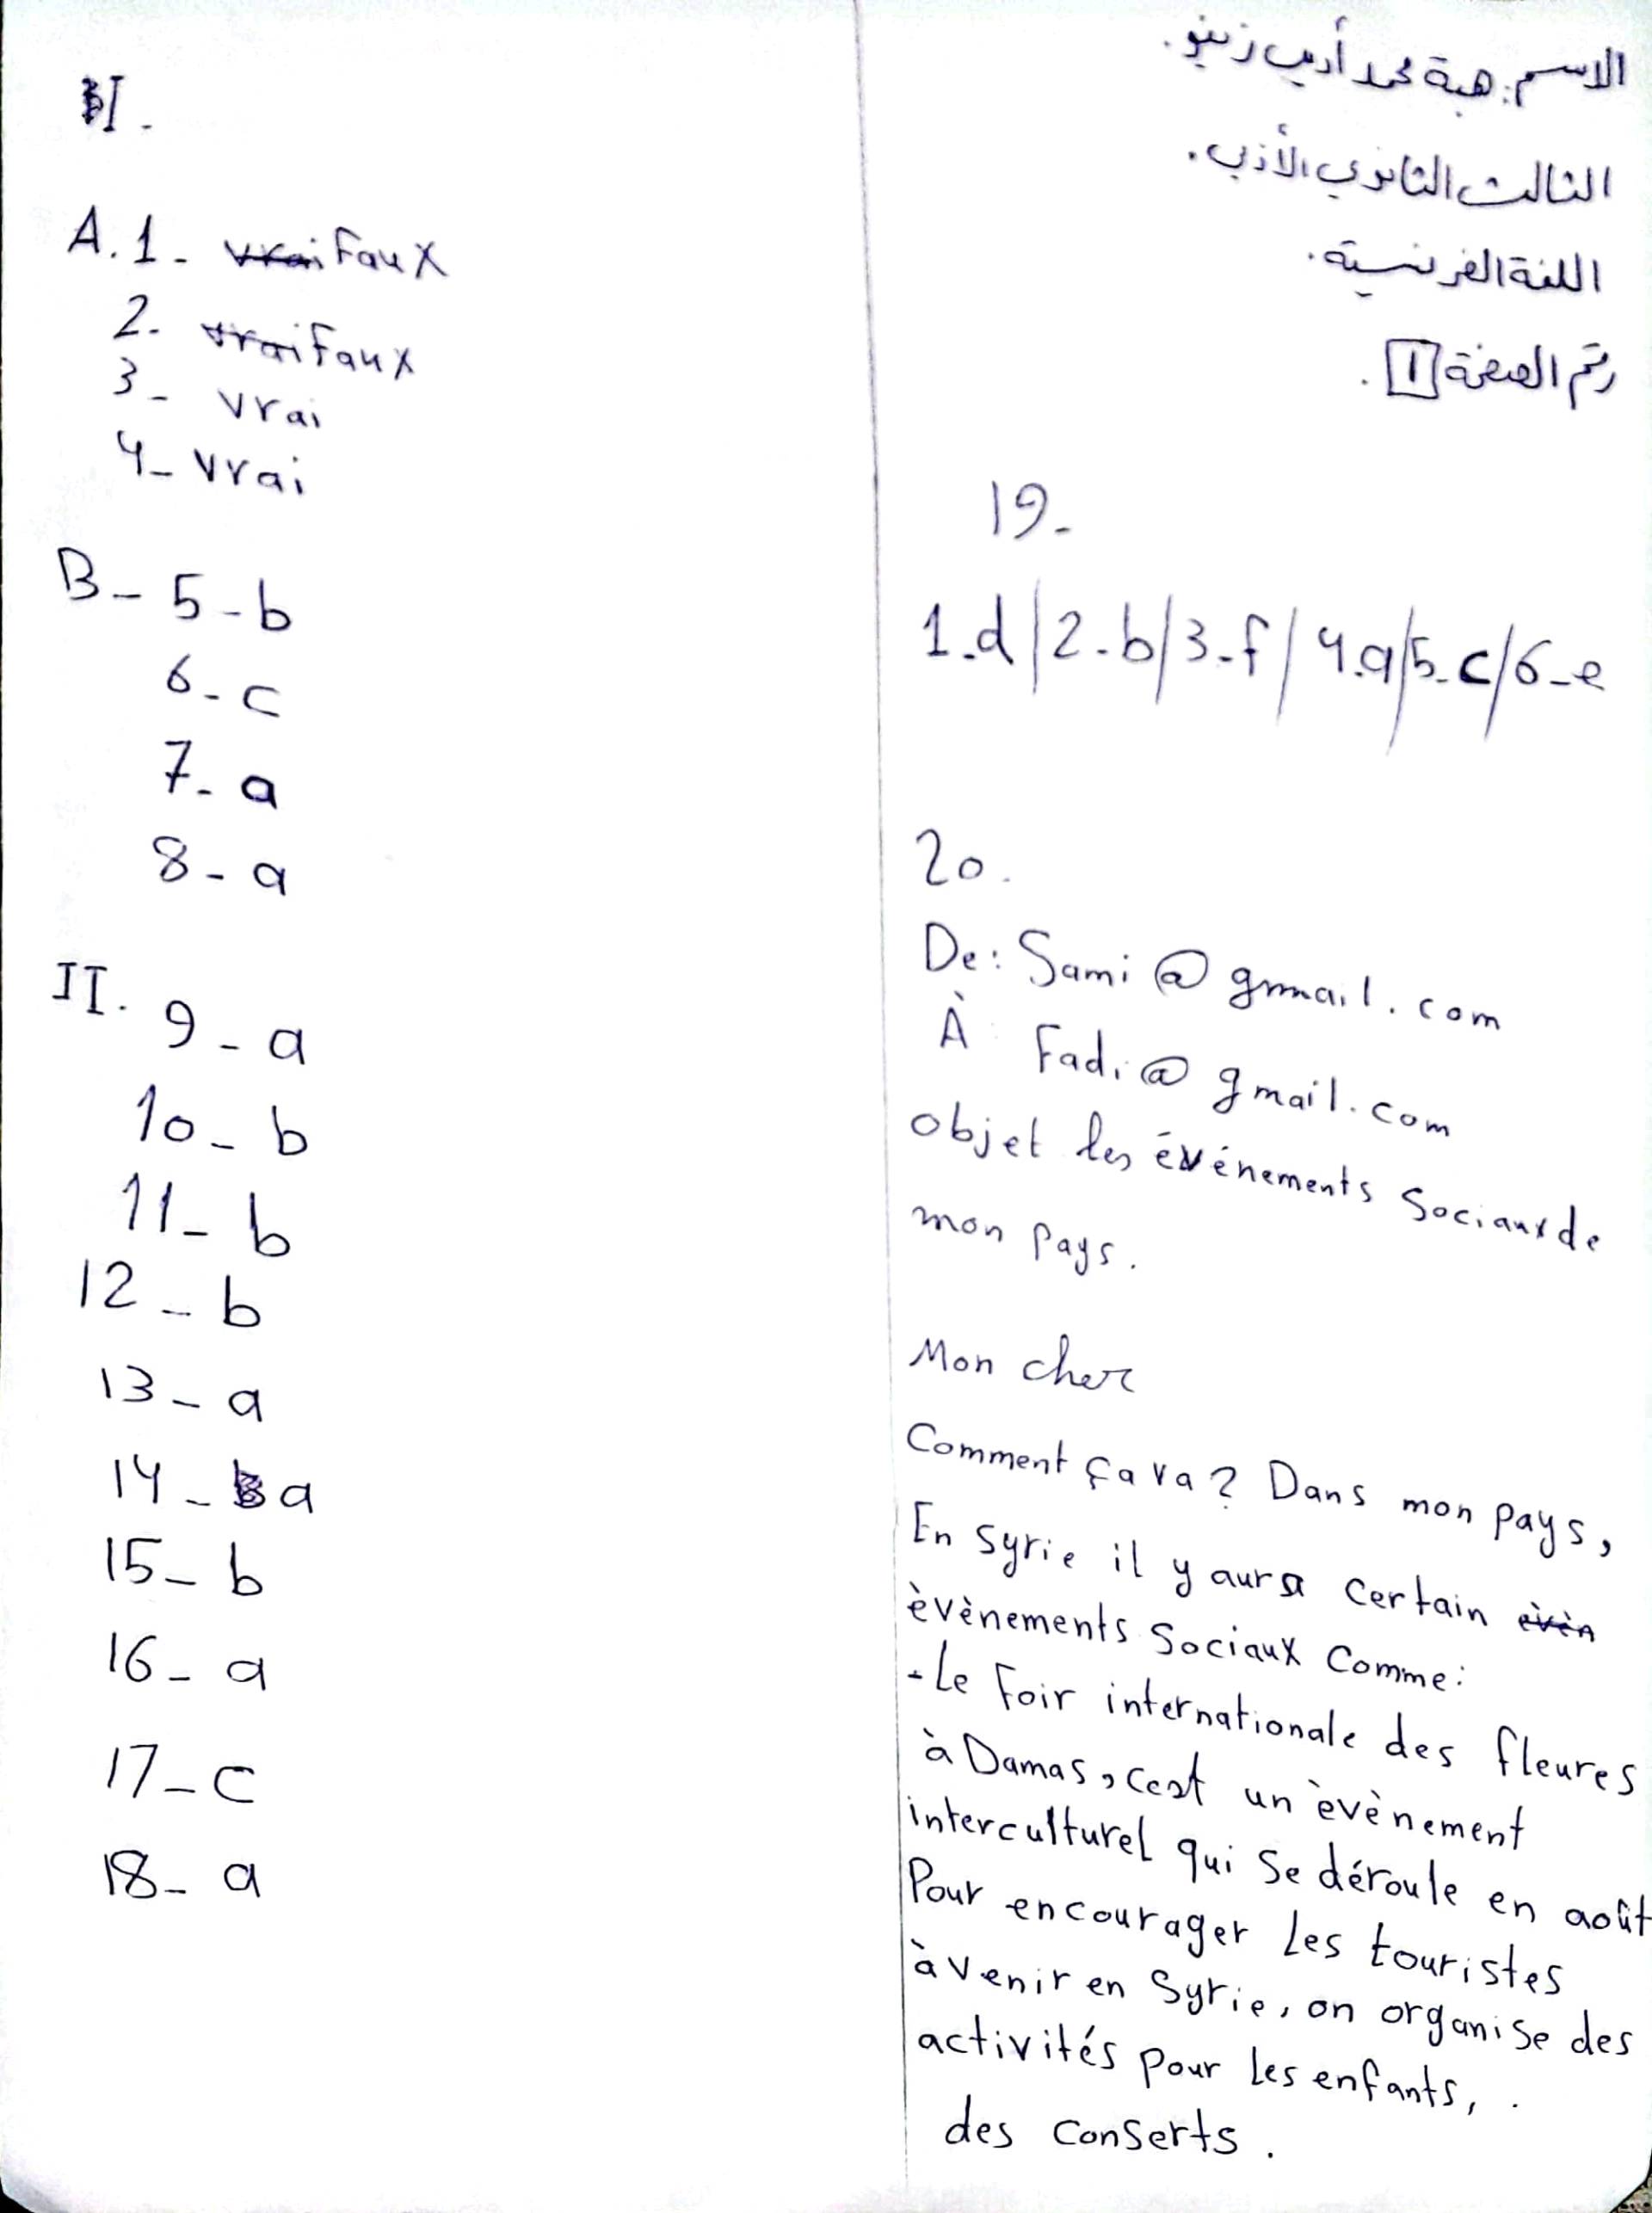 I.
A. 1 - vrai Faux
2. vrai Faux
3 - vrai
4 - vrai
B - 5 - b
6 - c
7 - a
8 - a
II. 9 - a
10 - b
11 - b
12 - b
13 - a
14 - a
15 - b
16 - a
17 - c
18 - a
الاسم: هبة محمد أديب زينو.
الثالث الثانوي الأدبي.
اللغة الفرنسية.
رقم الصفحة 1.
19 -
1.d / 2.b / 3.f / 4.a / 5.c / 6.e
20.
De: Sami @ gmail.com
À Fadi @ gmail.com
objet les événements Sociaux de
mon Pays.
Mon cher
Comment ça va? Dans mon pays,
En Syrie il y aura certain evèn
èvènements Sociaux Comme:
- Le Foir internationale des fleures
à Damas, cest un èvènement
interculturel qui Se déroule en août
Pour encourager Les touristes
à venir en Syrie, on organise des
activités Pour Les enfants, .
des conserts.